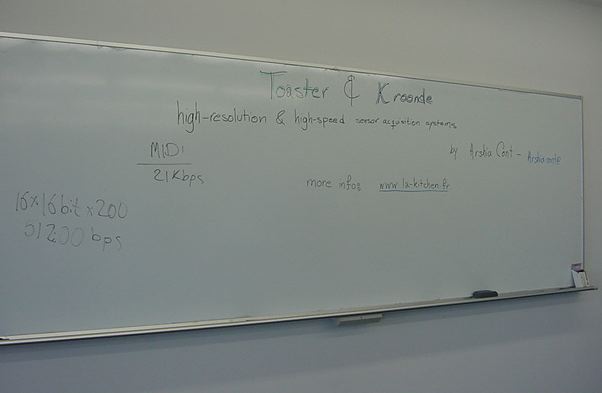 Toaster & Kroonde
high-resolution & high-speed sensor acquisition systems
by Arshia Cont -
MIDI
21Kbps
more info: www.la-kitchen.fr
16x16bit x 200
51200 bps